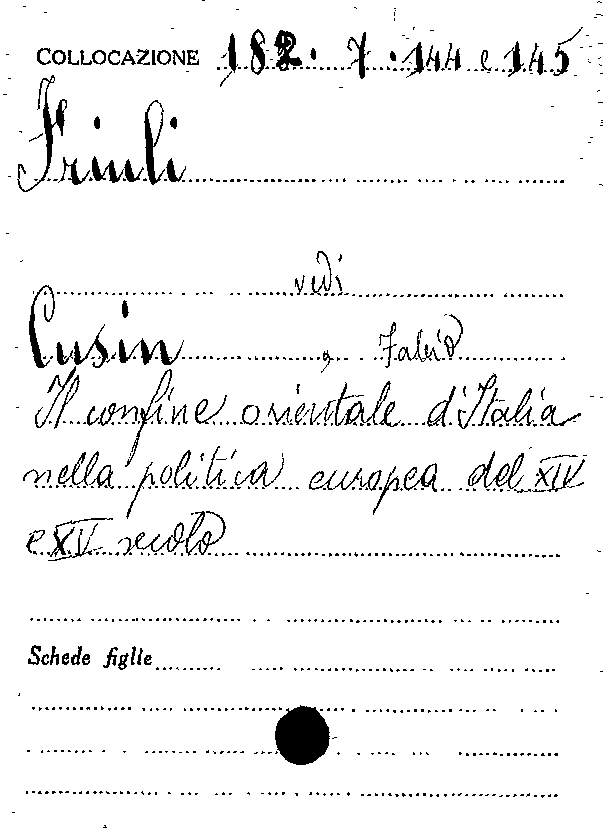 COLLOCAZIONE 182. 7. 144 e 145
Friuli
vedi
Cusin, Fabio
Il confine orientale d'Italia
nella politica europea del XIV
e XV secolo
Schede figlie